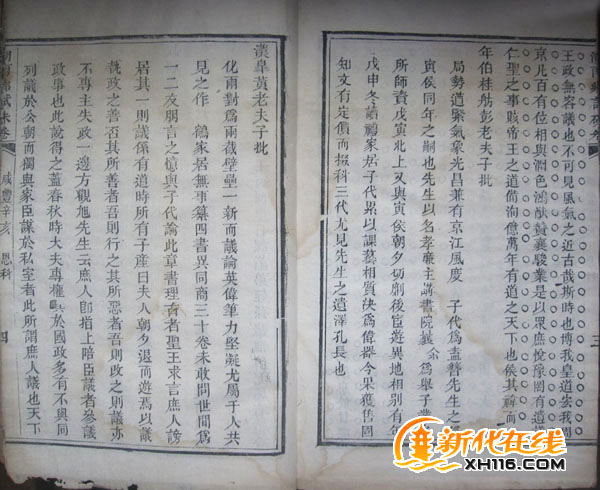 王政無容議也不可見風氣之近古哉斯時也博我皇道宏我
京凡百有位相與潤色鴻猷贊襄駿業是以眾庶悅豫閭有
仁聖之事賅帝王之道備洵億萬年有道之天下也侯其褘而
年伯桂舫彭老夫子批
局勢遒緊氣象光昌兼有京江風度 子代為
寅侯同年之嗣也先生以名孝廉主講書院 余為舉子業
所師戊寅北上又與寅侯朝夕切劘後宦遊異地相別有年
戊申冬讀禮家居子代累以課藝相質決為偉器今果獲售固
知文有定價而掇科三代尤見先生之遺澤孔長也
漢皋黃老夫子批
化兩對為兩截壁壘一新而議論英偉筆力堅凝尤屬千人共
見之作 鶴家居無事纂四書異同商三十卷未敢問世間為
一二友朋言之憶與子代論此章書理 古者聖王求言庶人謗
居其一則議係有道時所有子產曰夫人朝夕退而遊焉以議
執政之善否其所善者吾則行之其所惡者吾則改之則議亦
不專主失政一邊方觀旭先生云庶人卽指上陪臣議者參議
政事也此說得之蓋春秋時大夫專權 於國政多有不與同
列議於公朝而獨與家臣謀於私室者此所謂庶人議也天下
咸豐辛亥 恩科
四
三
新化在线
XH116.COM